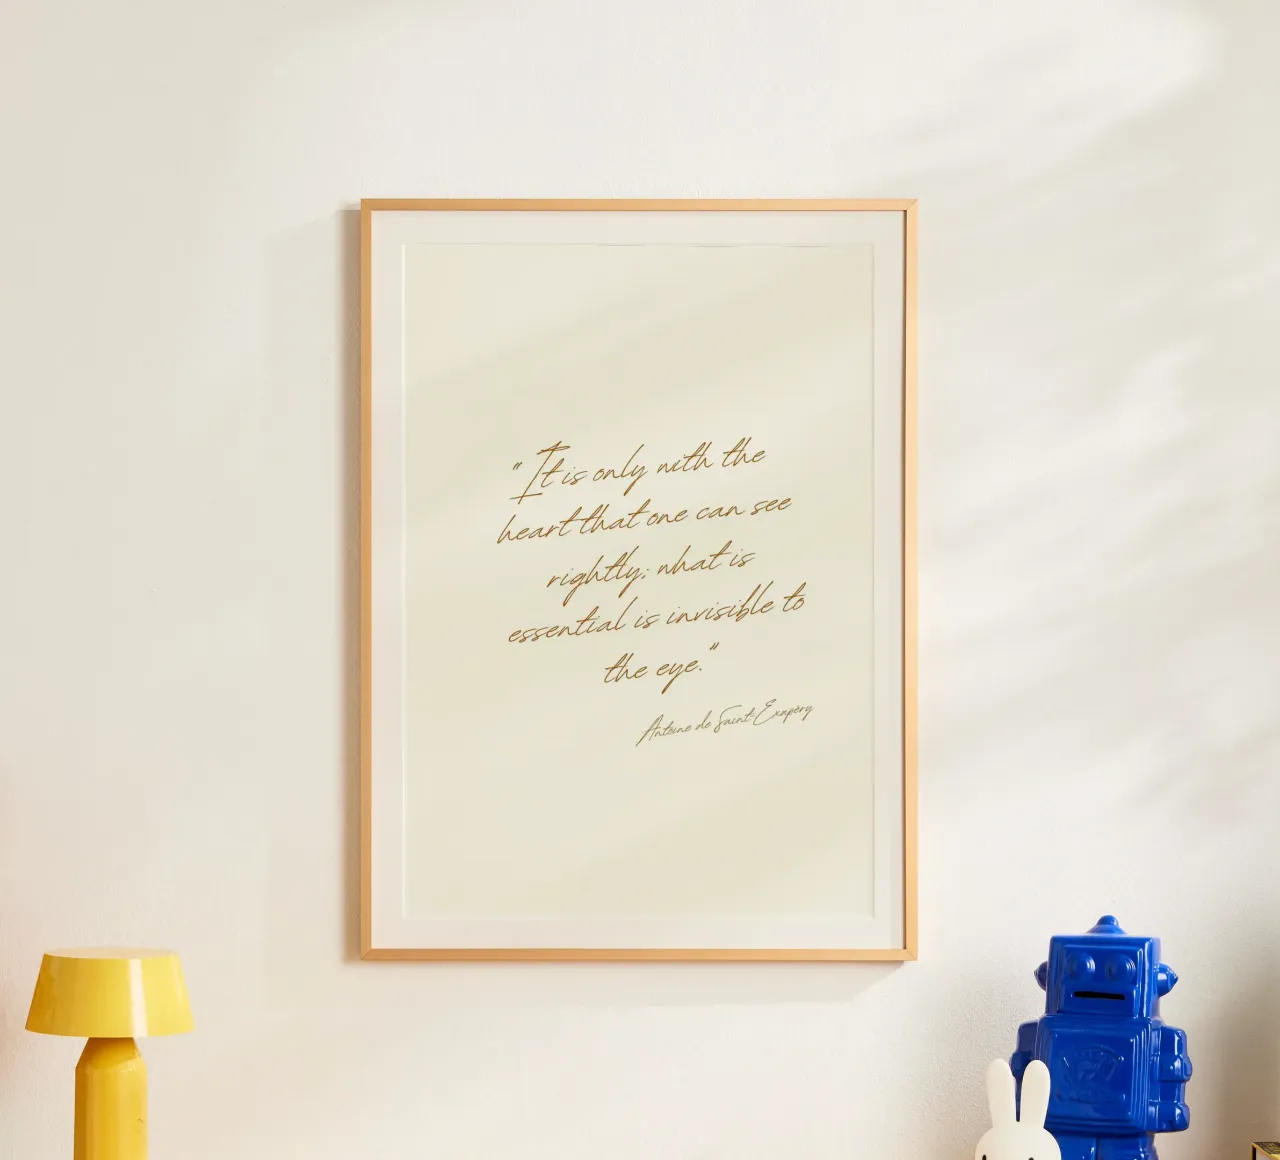 "It is only with the
heart that one can see
rightly; what is
essential is invisible to
the eye."
Antoine de Saint-Exupéry